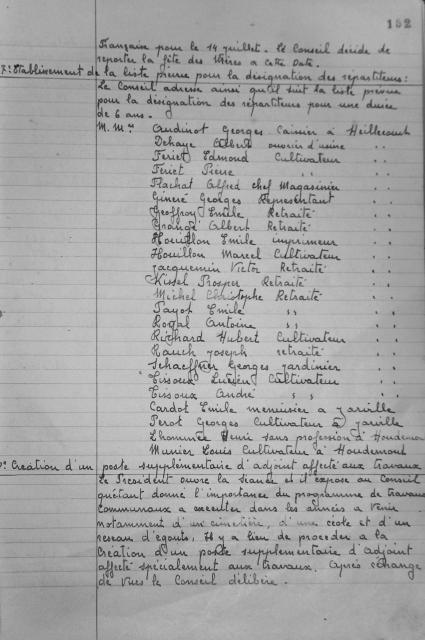 152
Française pour le 14 juillet. Le Conseil décide de
reporter la fête des Mères à cette date.
7: Etablissement de la liste prévue pour la désignation des répartiteurs:
Le Conseil adresse ainsi qu'il suit la liste prévue
pour la désignation des répartiteurs pour une durée
de 6 ans.
M. Mrs Audinot Georges Caissier à Heillecourt
Dehaye Albert ouvrier d'usine " "
Feriet Edmond Cultivateur " "
Feriet Pierre " " "
Flachat Alfred chef Magasinier " "
Gineré Georges Représentant " "
Geoffroy Emile Retraité " "
Grandé Albert Retraité " "
Houillon Emile imprimeur " "
Houillon Marcel Cultivateur " "
Jacquemin Victor Retraité " "
Kissel Prosper Retraité " "
Michel Christophe Retraité " "
Payot Emile " " "
Royal Antoine " " "
Richard Hubert Cultivateur " "
Rauch Joseph retraité " "
Schaeffner Georges jardinier " "
Tissoux Lucien Cultivateur " "
Tissoux André " " "
Cardot Emile menuisier à Jarville
Perot Georges Cultivateur à Jarville
Lhommée Henri sans profession à Houdemont
Munier Louis Cultivateur à Houdemont
Création d'un poste supplémentaire d'adjoint affecté aux travaux
Le Président ouvre la séance et il expose au Conseil
qu'étant donné l'importance du programme de travaux
Communaux à exécuter dans les années à venir
notamment d'un cimetière, d'une école et d'un
réseau d'égouts, il y a lieu de procéder à la
Création d'un poste supplémentaire d'adjoint
affecté spécialement aux travaux. Après échange
de vues le Conseil délibère.